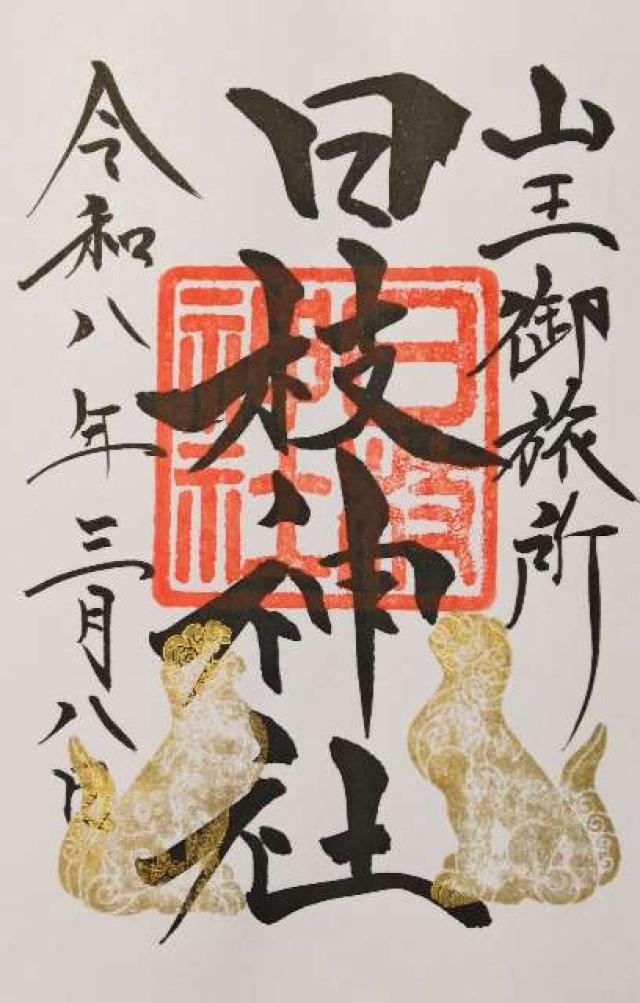 山王御旅所
日枝神社
令和八年三月八日